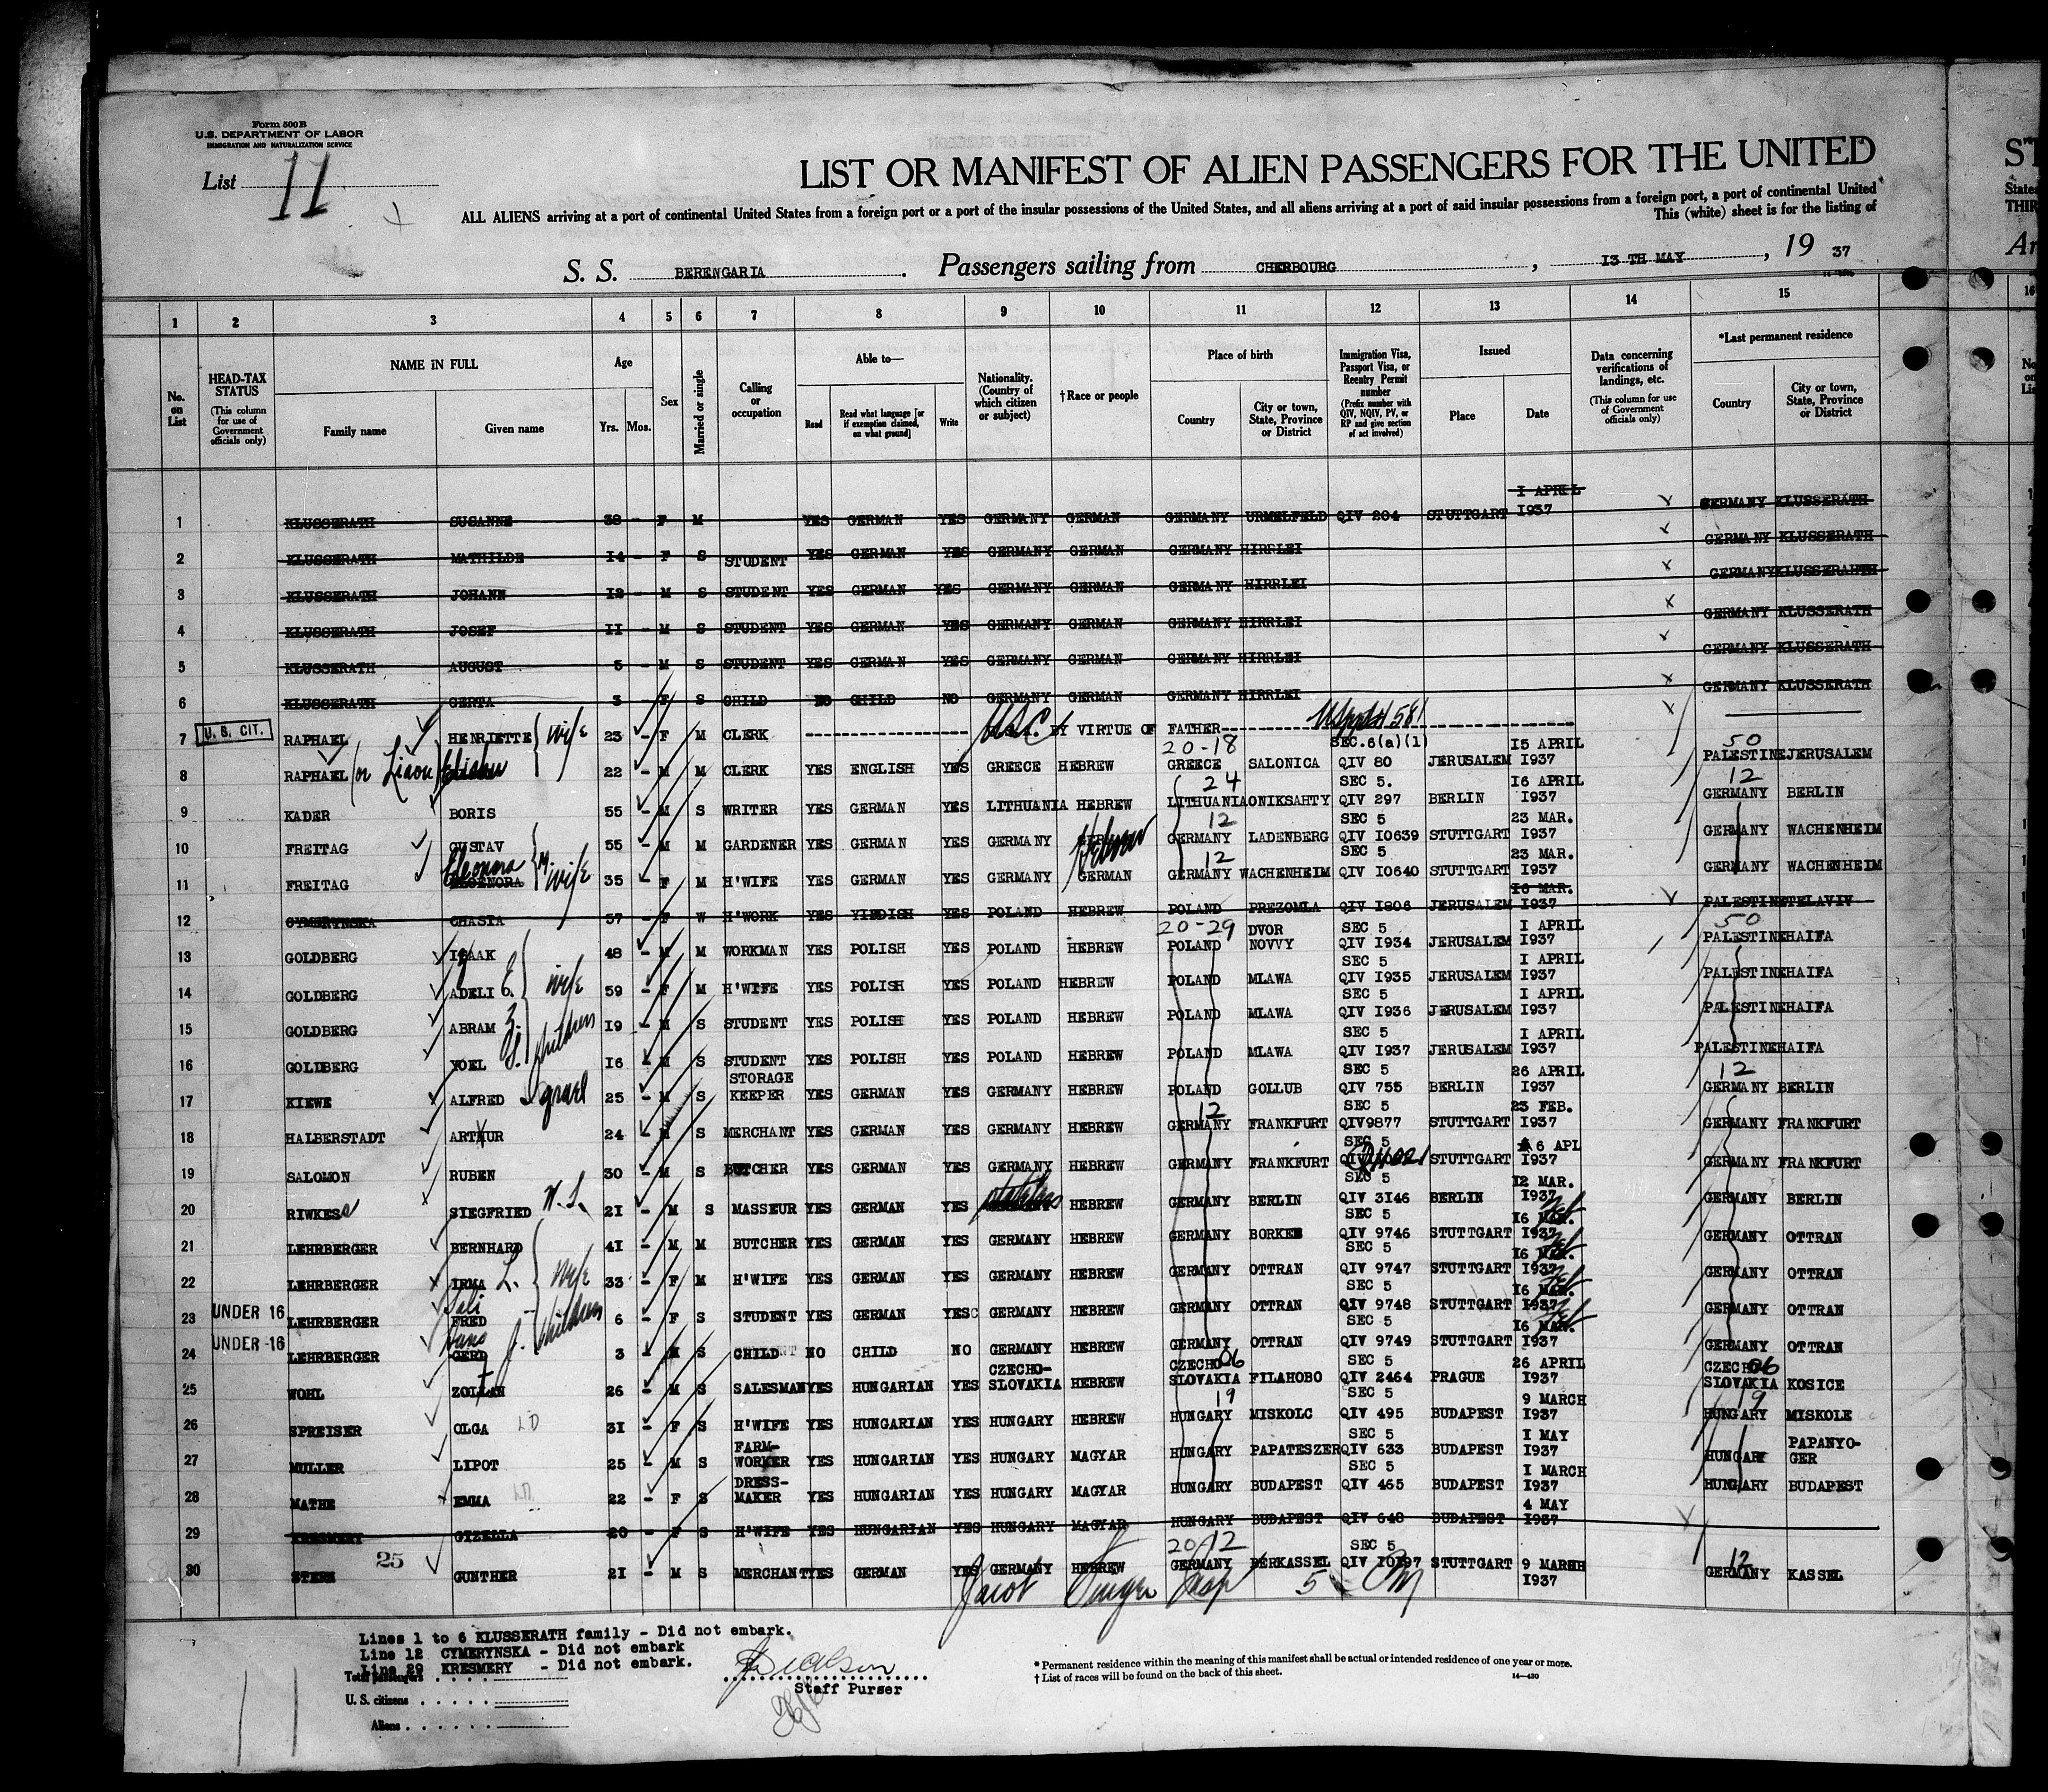 Form 500B
U.S. DEPARTMENT OF LABOR
IMMIGRATION AND NATURALIZATION SERVICE
List 11
LIST OR MANIFEST OF ALIEN PASSENGERS FOR THE UNITED
ALL ALIENS arriving at a port of continental United States from a foreign port or a port of the insular possessions of the United States, and all aliens arriving at a port of said insular possessions from a foreign port, a port of continental United
This (white) sheet is for the listing of
S. S. BERENGARIA. Passengers sailing from CHERBOURG, 13 TH MAY, 19 37
1 2 3 4 5 6 7 8 9 10 11 12 13 14 15
No. on List
HEAD-TAX STATUS (This column for use of Government officials only)
NAME IN FULL Family name Given name
Age Yrs. Mos.
Sex
Married or single
Calling or occupation
Able to— Read Read what language [or if exemption claimed, on what ground] Write
Nationality. (Country of which citizen or subject)
† Race or people
Place of birth Country City or town, State, Province or District
Immigration Visa, Passport Visa, or Reentry Permit number (Prefix number with QIV, NQIV, PV, or RP and give section of act involved)
Issued Place Date
Data concerning verifications of landings, etc. (This column for use of Government officials only)
*Last permanent residence Country City or town, State, Province or District
1 KLUSSERATH SUSANNE 38 - F M YES GERMAN YES GERMANY GERMAN GERMANY URMELFELD QIV 204 STUTTGART 1 APRIL 1937 GERMANY KLUSSERATH
2 KLUSSERATH MATHILDE 14 - F S STUDENT YES GERMAN YES GERMANY GERMAN GERMANY HIRRLEI GERMANY KLUSSERATH
3 KLUSSERATH JOHANN 12 - M S STUDENT YES GERMAN YES GERMANY GERMAN GERMANY HIRRLEI GERMANY KLUSSERAHTH
4 KLUSSERATH JOSEF 11 - M S STUDENT YES GERMAN YES GERMANY GERMAN GERMANY HIRRLEI GERMANY KLUSSERATH
5 KLUSSERATH AUGUST 5 - M S STUDENT YES GERMAN YES GERMANY GERMAN GERMANY HIRRLEI GERMANY KLUSSERATH
6 KLUSSERATH GERTA 3 - F S CHILD NO CHILD NO GERMANY GERMAN GERMANY HIRRLEI GERMANY KLUSSERATH
7 U. S. CIT. RAPHAEL HENRIETTE wife 23 - F M CLERK U.S.C. BY VIRTUE OF FATHER 581
8 RAPHAEL (or Liaou) 22 - M M CLERK YES ENGLISH YES GREECE HEBREW 20-18 GREECE SALONICA SEC.6(a)(1) QIV 80 JERUSALEM 15 APRIL 1937 50 PALESTINE JERUSALEM
9 KADER BORIS 55 - M S WRITER YES GERMAN YES LITHUANIA HEBREW 24 LITHUANIA ONIKSAHTY SEC 5. QIV 297 BERLIN 16 APRIL 1937 12 GERMANY BERLIN
10 FREITAG GUSTAV 55 - M M GARDENER YES GERMAN YES GERMANY Hebrew 12 GERMANY LADENBERG SEC 5 QIV 10639 STUTTGART 23 MAR. 1937 GERMANY WACHENHEIM
11 FREITAG Eleonora M. wife 35 - F M H'WIFE YES GERMAN YES GERMANY GERMAN 12 GERMANY WACHENHEIM SEC 5 QIV 10640 STUTTGART 23 MAR. 1937 GERMANY WACHENHEIM
12 CYMERYNSKA CHASIA 57 - F W H'WORK YES YIDDISH YES POLAND HEBREW POLAND PREZOMLA QIV 1806 JERUSALEM 16 MAR. 1937 PALESTINE TELAVIV
13 GOLDBERG ISAAK 48 - M M WORKMAN YES POLISH YES POLAND HEBREW 20-29 POLAND DVOR NOVVY SEC 5 QIV 1934 JERUSALEM 1 APRIL 1937 50 PALESTINE HAIFA
14 GOLDBERG ADELI E. wife 59 - F M H'WIFE YES POLISH YES POLAND HEBREW POLAND MLAWA SEC 5 QIV 1935 JERUSALEM 1 APRIL 1937 PALESTINE HAIFA
15 GOLDBERG ABRAM Z. children 19 - M S STUDENT YES POLISH YES POLAND HEBREW POLAND MLAWA SEC 5 QIV 1936 JERUSALEM 1 APRIL 1937 PALESTINE HAIFA
16 GOLDBERG YOEL 16 - M S STUDENT YES POLISH YES POLAND HEBREW POLAND MLAWA SEC 5 QIV 1937 JERUSALEM 1 APRIL 1937 PALESTINE HAIFA
17 KIEWE ALFRED Israel 25 - M S STORAGE KEEPER YES GERMAN YES GERMANY HEBREW POLAND GOLLUB SEC 5 QIV 755 BERLIN 26 APRIL 1937 12 GERMANY BERLIN
18 HALBERSTADT ARTHUR 24 - M S MERCHANT YES GERMAN YES GERMANY HEBREW 12 GERMANY FRANKFURT SEC 5 QIV9877 STUTTGART 23 FEB. 1937 GERMANY FRANKFURT
19 SALOMON RUBEN 30 - M S BUTCHER YES GERMAN YES GERMANY HEBREW GERMANY FRANKFURT SEC 5 11021 STUTTGART 6 APL 1937 GERMANY FRANKFURT
20 RIWKESS SIEGFRIED W. S. 21 - M S MASSEUR YES GERMAN YES stateless HEBREW GERMANY BERLIN SEC 5 QIV 3146 BERLIN 12 MAR. 1937 GERMANY BERLIN
21 LEHRBERGER BERNHARD 41 - M M BUTCHER YES GERMAN YES GERMANY HEBREW GERMANY BORKEN SEC 5 QIV 9746 STUTTGART 16 Feb 1937 GERMANY OTTRAN
22 LEHRBERGER IRMA L. wife 33 - F M H'WIFE YES GERMAN YES GERMANY HEBREW GERMANY OTTRAN SEC 5 QIV 9747 STUTTGART 16 Feb 1937 GERMANY OTTRAN
23 UNDER 16 LEHRBERGER Sali FRED children 6 - F S STUDENT YES GERMAN YES GERMANY HEBREW GERMANY OTTRAN SEC 5 QIV 9748 STUTTGART 16 Feb 1937 GERMANY OTTRAN
24 UNDER -16 LEHRBERGER Hans GERD J. 3 M S CHILD NO CHILD NO GERMANY HEBREW GERMANY OTTRAN SEC 5 QIV 9749 STUTTGART 16 MAR. Feb 1937 GERMANY OTTRAN
25 WOHL ZOLTAN 26 - M S SALESMAN YES HUNGARIAN YES CZECHO-SLOVAKIA HEBREW CZECHO 06 SLOVAKIA FILAHOBO SEC 5 QIV 2464 PRAGUE 26 APRIL 1937 CZECHO 06 SLOVAKIA KOSICE
26 SPREISER OLGA LD 31 - F S H'WIFE YES HUNGARIAN YES HUNGARY HEBREW 19 HUNGARY MISKOLC SEC 5 QIV 495 BUDAPEST 9 MARCH 1937 19 HUNGARY MISKOLE
27 MULLER LIPOT 25 - M S FARM-WORKER YES HUNGARIAN YES HUNGARY MAGYAR HUNGARY PAPATESZER SEC 5 QIV 633 BUDAPEST 1 MAY 1937 HUNGARY PAPANYO-GER
28 MATHE EMMA LD 22 - F S DRESS-MAKER YES HUNGARIAN YES HUNGARY MAGYAR HUNGARY BUDAPEST SEC 5 QIV 465 BUDAPEST 1 MARCH 1937 HUNGARY BUDAPEST
29 KRESMERY GIZELLA 20 - F S H'WIFE YES HUNGARIAN YES HUNGARY MAGYAR HUNGARY BUDAPEST QIV 648 BUDAPEST 4 MAY 1937
30 STERN 25 GUNTHER 21 - M S MERCHANT YES GERMAN YES GERMANY HEBREW 20 12 GERMANY BERKASSEL SEC 5 QIV 10197 STUTTGART 9 MARCH 1937 12 GERMANY KASSEL
Jacob Insp 5
Lines 1 to 6 KLUSSERATH family - Did not embark.
Line 12 CYMERYNSKA - Did not embark
Line 29 KRESMERY - Did not embark.
Total passengers
U. S. citizens
Aliens
Staff Purser
* Permanent residence within the meaning of this manifest shall be actual or intended residence of one year or more.
† List of races will be found on the back of this sheet.
14—430
ST
States
THIR
Ar
16